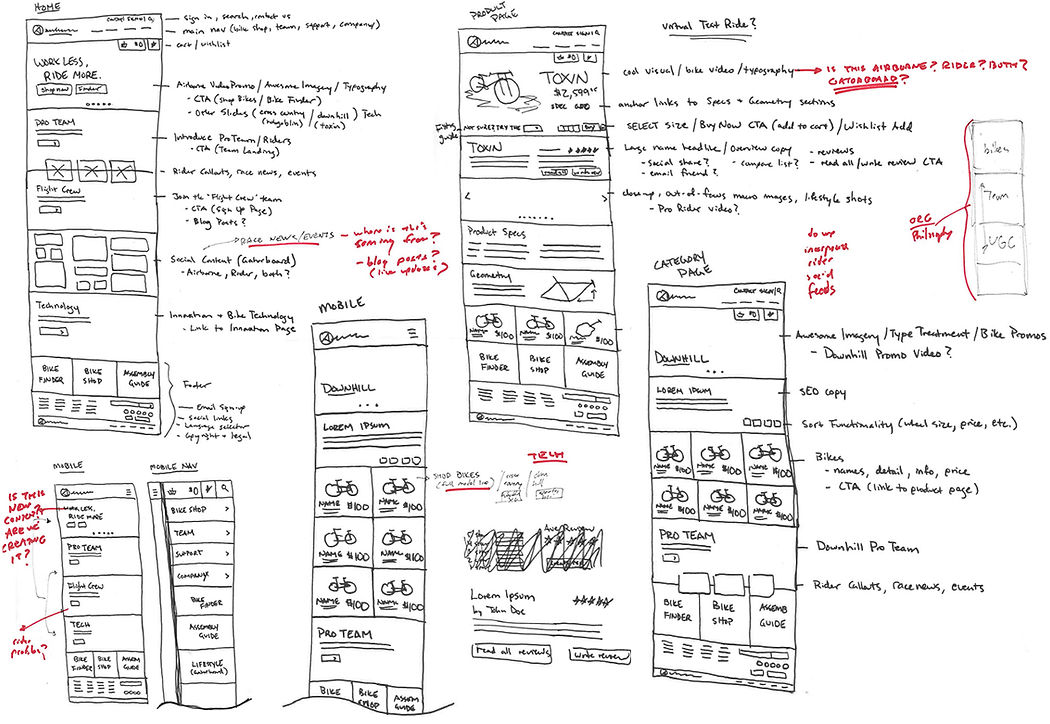 HOME
CONTACT SIGN IN
sign in, search, contact us
main nav (bike shop, team, support, company)
cart / wishlist
WORK LESS,
RIDE MORE.
Shop now
Finder
Airborne Video Promo / Awesome Imagery / Typography
- CTA (Shop Bikes / Bike Finder)
- Other Slides (cross country / downhill) Tech
(hobgoblin) (toxin)
PRO TEAM
Introduce Pro Team / Riders
- CTA (Team Landing)
Rider Callouts, race news, events
Flight Crew
Join the "Flight Crew" team
- CTA (Sign Up Page)
- Blog Posts?
RACE NEWS/EVENTS
- where is this coming from?
- blog posts? (live updates)
Social Content (Gatorboard)
- Airborne, Rider, both?
Technology
Innovation + Bike Technology
- Link to Innovation Page
BIKE FINDER
BIKE SHOP
ASSEMBLY GUIDE
Footer
- Email Sign-up
- Social links
- Language selector
- Copyright + legal
PRODUCT PAGE
CONTACT SIGN IN
virtual Test Ride?
TOXIN
$2,599
SPEC GEO
cool visual / bike video / typography
IS THIS AIRBORNE? RIDER? BOTH?
GATORBOARD?
anchor links to Specs + Geometry sections
guide
NOT SURE? TRY THE
Buy
SELECT size / Buy Now CTA (add to cart) / Wishlist Add
TOXIN
Large name headline / Overview copy
- social share?
- email friend?
- compare list?
- reviews
- read all / write review CTA
close-up, out-of-focus macro images, lifestyle shots
- Pro Rider video?
Product Specs
Geometry
NAME $100
NAME $100
NAME $100
BIKE FINDER
BIKE SHOP
ASSEMBLY GUIDE
do we
incorporate
rider
social
feeds
ORG
Philosophy
bikes
Team
UGC
CATEGORY PAGE
CONTACT SIGN IN
DOWNHILL
Awesome Imagery / Type Treatment / Bike Promos
- Downhill Promo Video?
LOREM IPSUM
SEO copy
Sort Functionality (wheel size, price, etc.)
NAME $100
NAME $100
NAME $100
NAME $100
NAME $100
NAME $100
Bikes
- names, detail, info, price
- CTA (link to product page)
PRO TEAM
Downhill Pro Team
Rider Callouts, race news, events
BIKE FINDER
BIKE SHOP
ASSEMB GUIDE
MOBILE
DOWNHILL
LOREM IPSUM
NAME $100
NAME $100
NAME $100
NAME $100
NAME $100
NAME $100
PRO TEAM
BIKE
BIKE SHOP
ASSEM GUIDE
TECH
SHOP BIKES
(full model line)
Lorem Ipsum
by John Doe
Read all reviews
Write review
MOBILE
WORK LESS,
RIDE MORE
PRO TEAM
Flight Crew
TECH
BIKE FINDER
BIKE SHOP
ASSEM GUIDE
IS THIS
NEW
CONTENT?
ARE WE
CREATING
IT?
rider
profiles?
MOBILE NAV
BIKE SHOP >
TEAM >
SUPPORT >
COMPANY >
BIKE FINDER
ASSEMBLY GUIDE
LIFESTYLE
(Gatorboard)